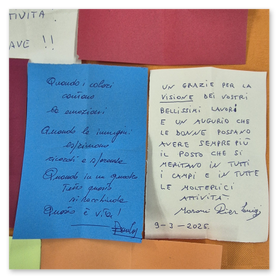 TIVITÀ.
AVE !!
Quando i colori
danzano
le emozioni
Quando le immagini
esprimono
ricordi e speranze
Quando in un quadro
Tutto questo
si racchiude
Questo è vita!
UN GRAZIE PER LA
VISIONE DEI VOSTRI
BELLISSIMI LAVORI
E UN AUGURIO CHE
LE DONNE POSSANO
AVERE SEMPRE PIÙ
IL POSTO CHE SI
MERITANO IN TUTTI
I CAMPI E IN TUTTE
LE MOLTEPLICI
ATTIVITÀ
Moroni Pier Luigi
9-3-2025